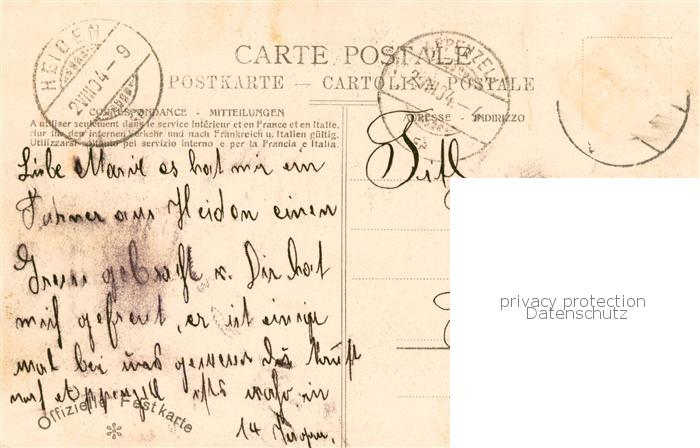 HEIDEN
2.VIII.04.-9
APPENZELL
2.VIII.04.-
CARTE POSTALE
POSTKARTE - CARTOLINA POSTALE
CORRESPONDANCE - MITTEILUNGEN
ADRESSE - INDIRIZZO
A utiliser seulement dans le service intérieur et en France et en Italie.
Nur für den internen Verkehr und nach Frankreich u. Italien gültig.
Utilizzarsi soltanto pel servizio interno e per la Francia e Italia.
Liebe Marie es hat mir ein
aus Heiden einen
Gruss gebracht v. Dir hat
mich gefreut, er ist einige
mal bei uns gewesen
in
14
Offizielle Festkarte
Titl
privacy protection
Datenschutz